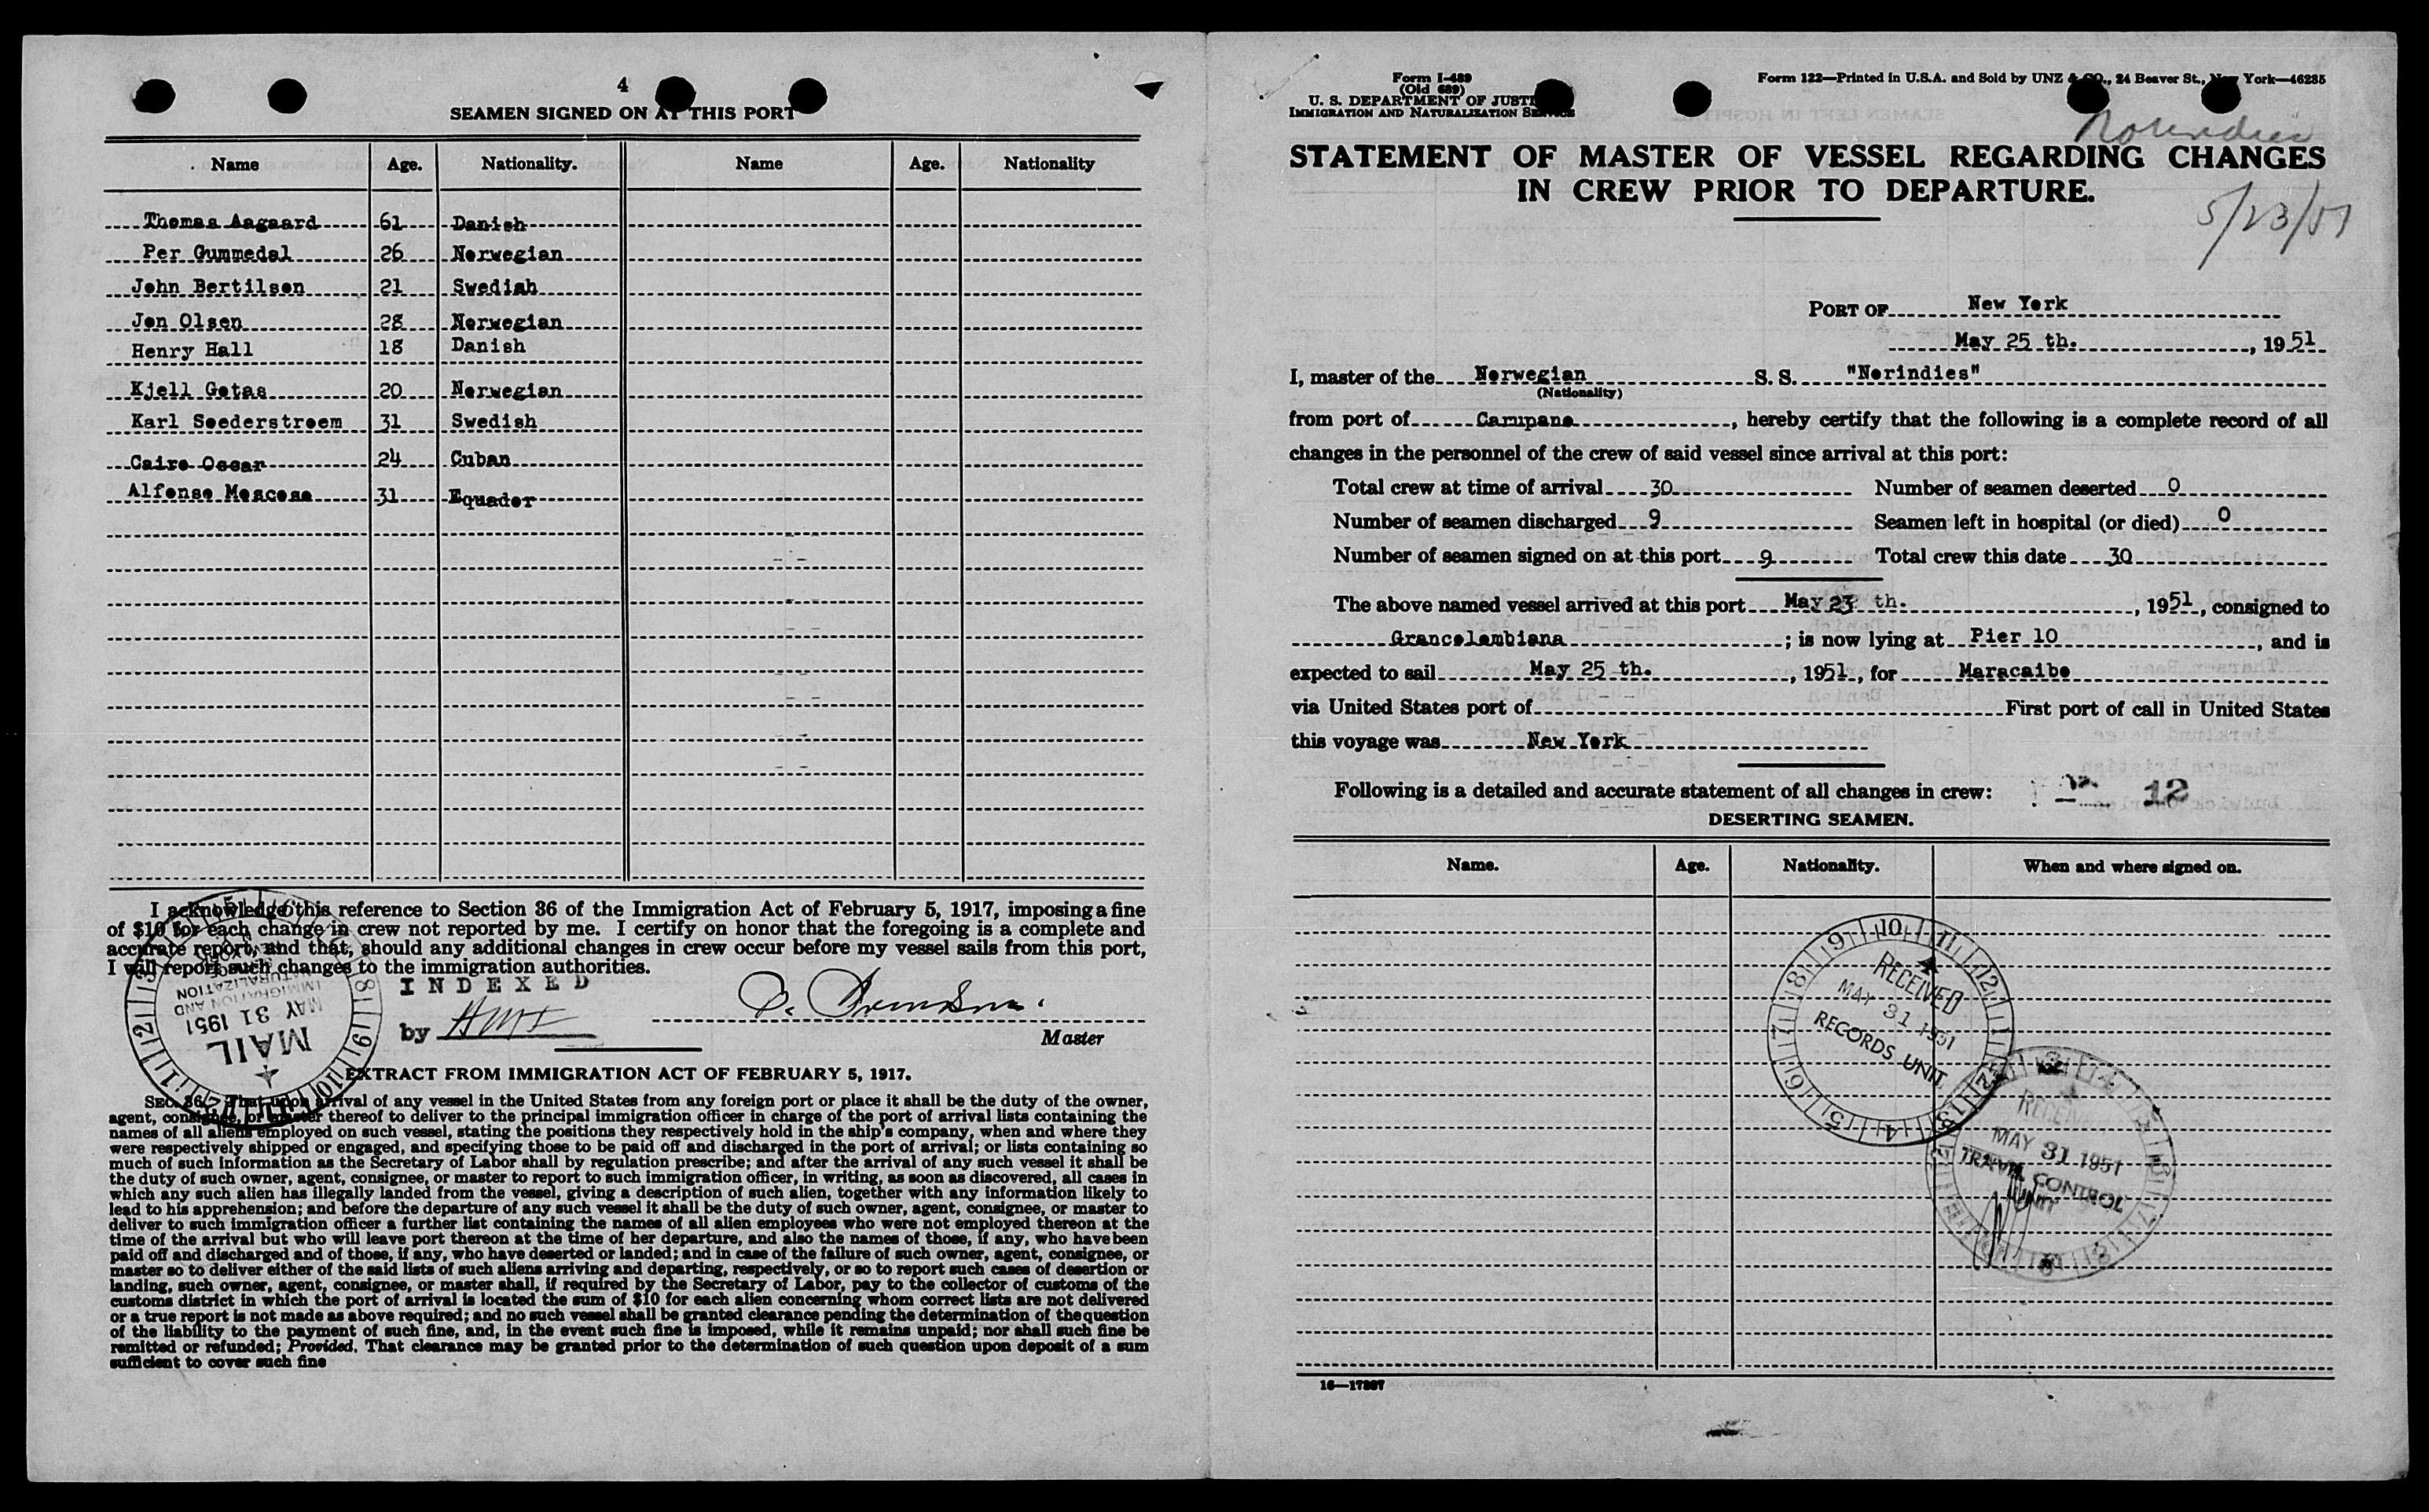 4
SEAMEN SIGNED ON AT THIS PORT
Name Age. Nationality. Name Age. Nationality
Thomas Aagaard 61 Danish
Per Gummedal 26 Norwegian
John Bertilsen 21 Swedish
Jon Olsen 28 Norwegian
Henry Hall 18 Danish
Kjell Gotas 20 Norwegian
Karl Soederstroem 31 Swedish
Cairo Oscar 24 Cuban
Alfonso Moscosa 31 Equador
I acknowledge this reference to Section 36 of the Immigration Act of February 5, 1917, imposing a fine
of $10 for each change in crew not reported by me. I certify on honor that the foregoing is a complete and
accurate report, and that, should any additional changes in crew occur before my vessel sails from this port,
I will report such changes to the immigration authorities.
INDEXED
by
Master
MAIL
MAY 31 1951
IMMIGRATION AND
NATURALIZATION
EXTRACT FROM IMMIGRATION ACT OF FEBRUARY 5, 1917.
SEC. 36. That upon arrival of any vessel in the United States from any foreign port or place it shall be the duty of the owner,
agent, consignee, or master thereof to deliver to the principal immigration officer in charge of the port of arrival lists containing the
names of all aliens employed on such vessel, stating the positions they respectively hold in the ship's company, when and where they
were respectively shipped or engaged, and specifying those to be paid off and discharged in the port of arrival; or lists containing so
much of such information as the Secretary of Labor shall by regulation prescribe; and after the arrival of any such vessel it shall be
the duty of such owner, agent, consignee, or master to report to such immigration officer, in writing, as soon as discovered, all cases in
which any such alien has illegally landed from the vessel, giving a description of such alien, together with any information likely to
lead to his apprehension; and before the departure of any such vessel it shall be the duty of such owner, agent, consignee, or master to
deliver to such immigration officer a further list containing the names of all alien employees who were not employed thereon at the
time of the arrival but who will leave port thereon at the time of her departure, and also the names of those, if any, who have been
paid off and discharged and of those, if any, who have deserted or landed; and in case of the failure of such owner, agent, consignee, or
master so to deliver either of the said lists of such aliens arriving and departing, respectively, or so to report such cases of desertion or
landing, such owner, agent, consignee, or master shall, if required by the Secretary of Labor, pay to the collector of customs of the
customs district in which the port of arrival is located the sum of $10 for each alien concerning whom correct lists are not delivered
or a true report is not made as above required; and no such vessel shall be granted clearance pending the determination of the question
of the liability to the payment of such fine, and, in the event such fine is imposed, while it remains unpaid; nor shall such fine be
remitted or refunded; Provided. That clearance may be granted prior to the determination of such question upon deposit of a sum
sufficient to cover such fine
Form I-489
(Old 689)
U. S. DEPARTMENT OF JUSTICE
IMMIGRATION AND NATURALIZATION SERVICE
Form 122—Printed in U.S.A. and Sold by UNZ & CO., 24 Beaver St., New York—46285
Norindies
STATEMENT OF MASTER OF VESSEL REGARDING CHANGES
IN CREW PRIOR TO DEPARTURE.
5/23/51
PORT OF New York
May 25 th., 1951
I, master of the Norwegian S. S. "Norindies"
(Nationality)
from port of Carupano, hereby certify that the following is a complete record of all
changes in the personnel of the crew of said vessel since arrival at this port:
Total crew at time of arrival 30 Number of seamen deserted 0
Number of seamen discharged 9 Seamen left in hospital (or died) 0
Number of seamen signed on at this port 9 Total crew this date 30
The above named vessel arrived at this port May 23 th., 1951, consigned to
Grancolombiana; is now lying at Pier 10, and is
expected to sail May 25 th., 1951, for Maracaibo
via United States port of First port of call in United States
this voyage was New York
Following is a detailed and accurate statement of all changes in crew: 12
DESERTING SEAMEN.
Name. Age. Nationality. When and where signed on.
RECEIVED
MAY 31 1951
RECORDS UNIT
RECEIVED
MAY 31 1951
TRAVEL CONTROL
UNIT
16—17387